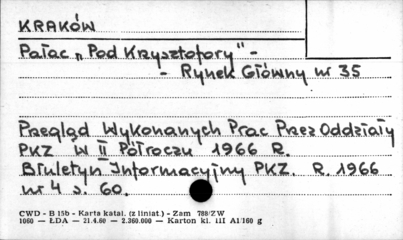 KRAKÓW
Pałac „Pod Krzysztofory" -
- Rynek Główny nr 35
Przegląd Wykonanych Prac Przez Oddziały
PKZ w II Półroczu 1966 R.
Biuletyn Informacyjny PKZ. R. 1966
nr 4 s. 60.
CWD - B 15b - Karta katal. (z liniat.) - Zam 788/ZW
1060 — ŁDA — 21.4.60 — 2.360.000 — Karton kl. III A1/160 g